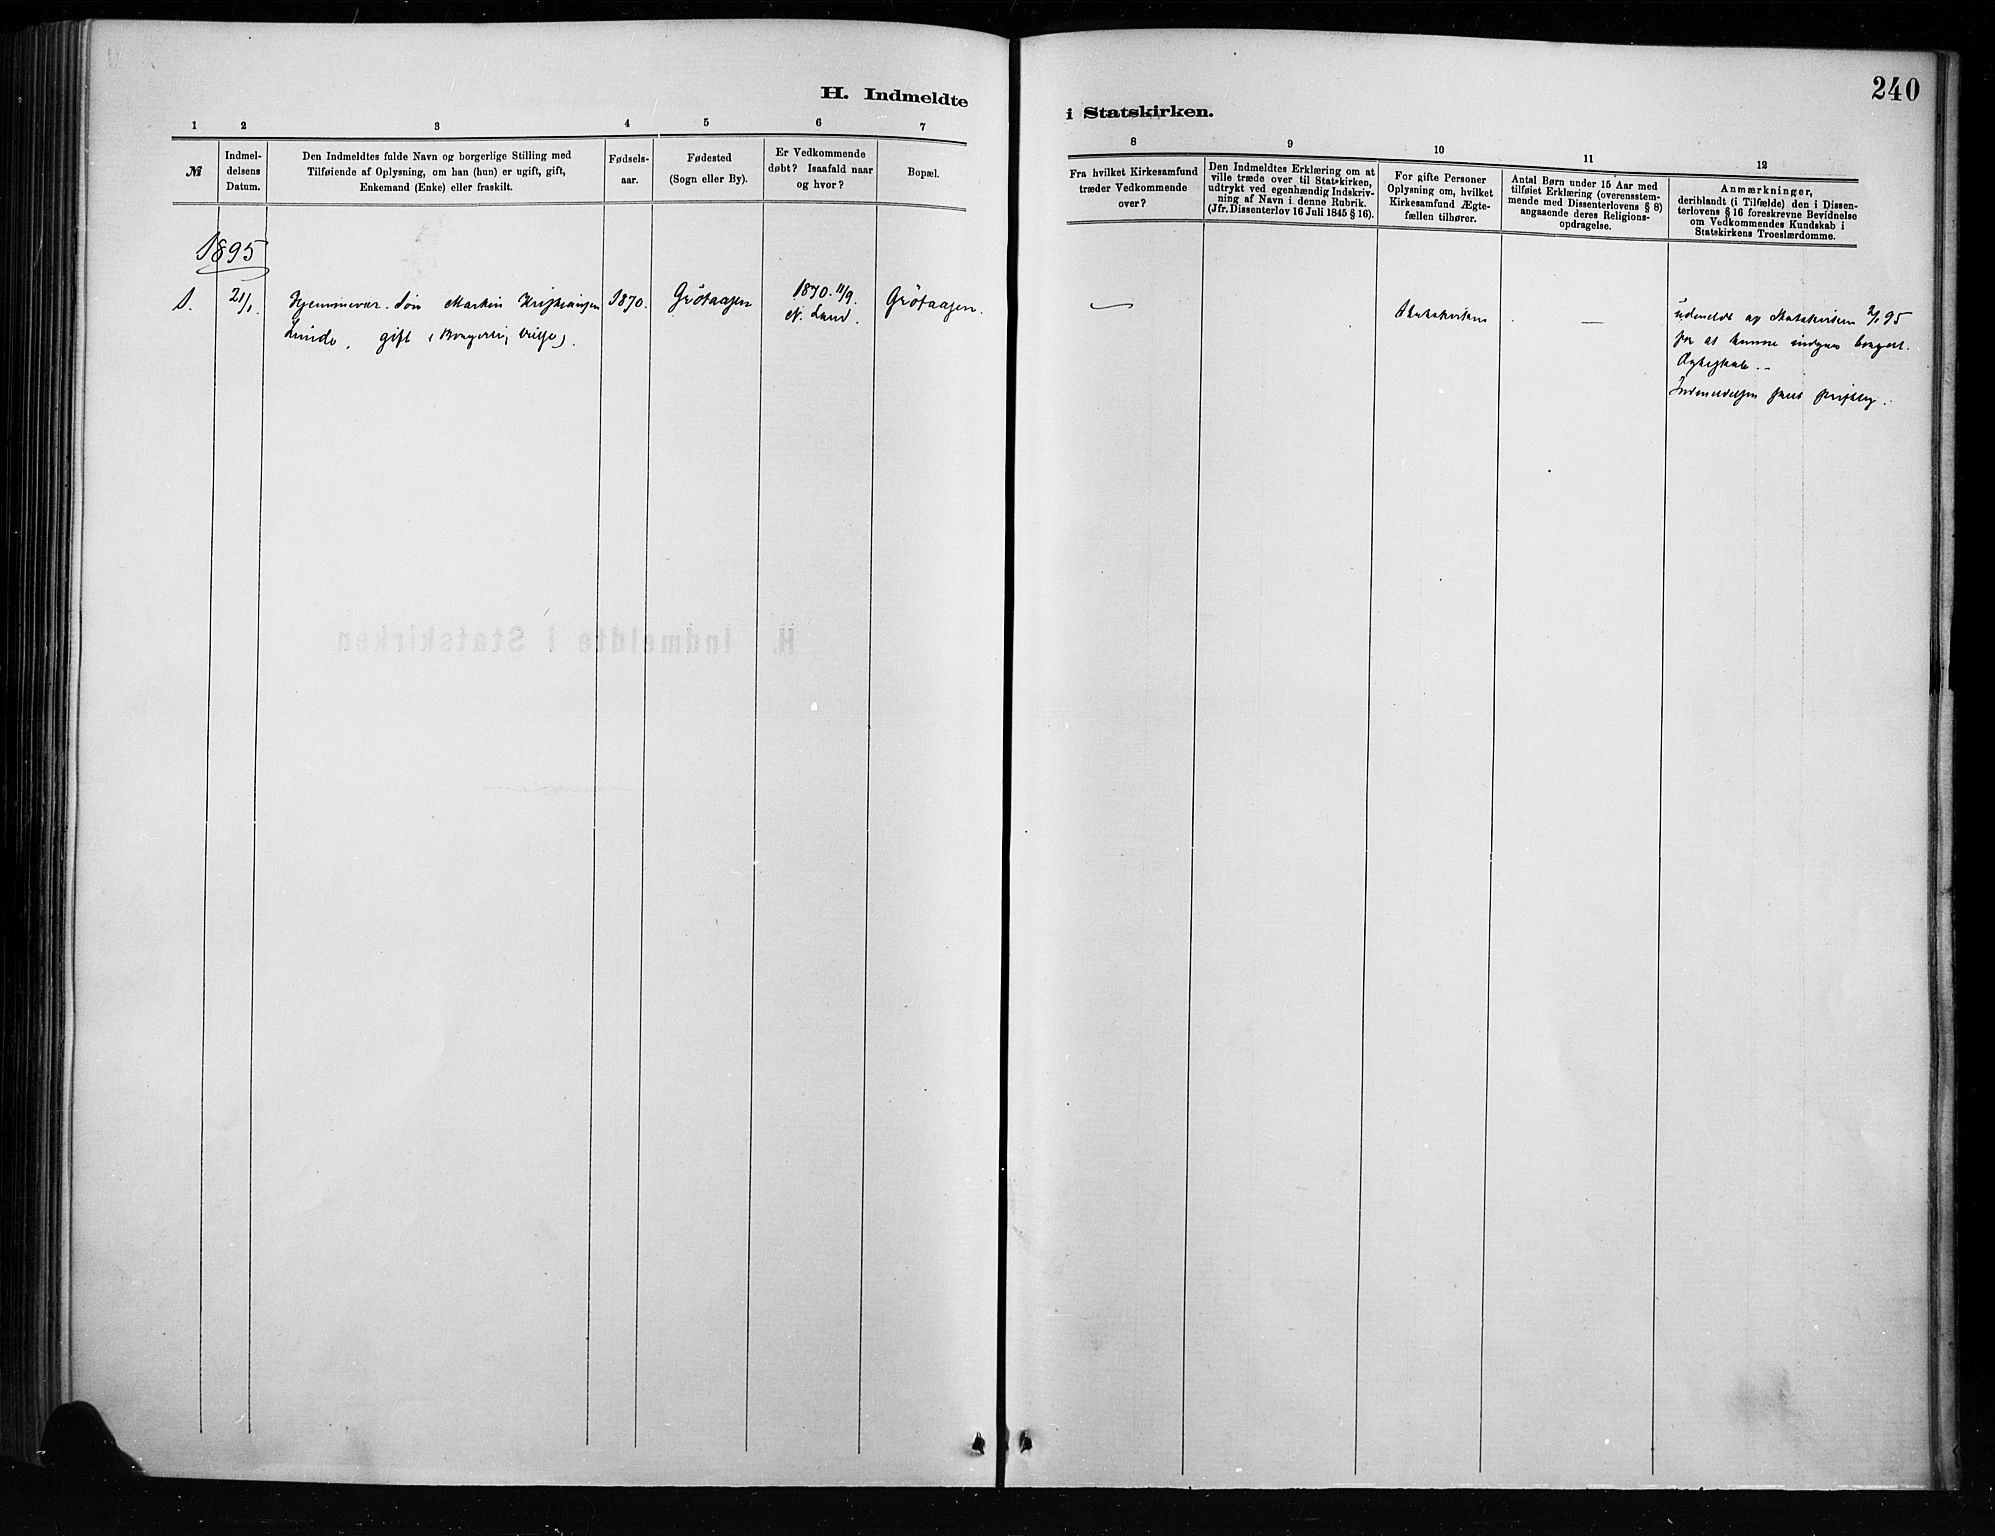 240
H. Indmeldte
i Statskirken.
1 2 3 4 5 6 7
8 9 10 11 12
№
Indmel-
delsens
Datum.
Den Indmeldtes fulde Navn og borgerlige Stilling med
Tilføiende af Oplysning, om han (hun) er ugift, gift,
Enkemand (Enke) eller fraskilt.
Fødsels-
aar.
Fødested
(Sogn eller By).
Er Vedkommende
døbt? Isaafald naar
og hvor?
Bopæl.
Fra hvilket Kirkesamfund
træder Vedkommende
over?
Den Indmeldtes Erklæring om at
ville træde over til Statskirken,
udtrykt ved egenhændig Indskriv-
ning af Navn i denne Rubrik.
(Jfr. Dissenterlov 16 Juli 1845 § 16).
For gifte Personer
Oplysning om, hvilket
Kirkesamfund Ægte-
fællen tilhører.
Antal Børn under 15 Aar med
tilføiet Erklæring (overensstem-
mende med Dissenterlovens § 8)
angaaende deres Religions-
opdragelse.
Anmærkninger,
deriblandt (i Tilfælde) den i Dissen-
terlovens § 16 foreskrevne Bevidnelse
om Vedkommendes Kundskab i
Statskirkens Troeslærdomme.
1895
1.
21/1.
Hjemmevær. Søn Martin Kristiansen
Lunde, gift (borgerlig vielse).
1870.
Grötaasen
1870. 11/9.
N. Land.
Grötaasen.
Statskirken
—
udmeldt af Statskirken 2/1 95
for at kunne indgaa borgerl.
Ægteskab. -
Indmeldelsen skeet skriftlig.
H. Indmeldte i Statskirken